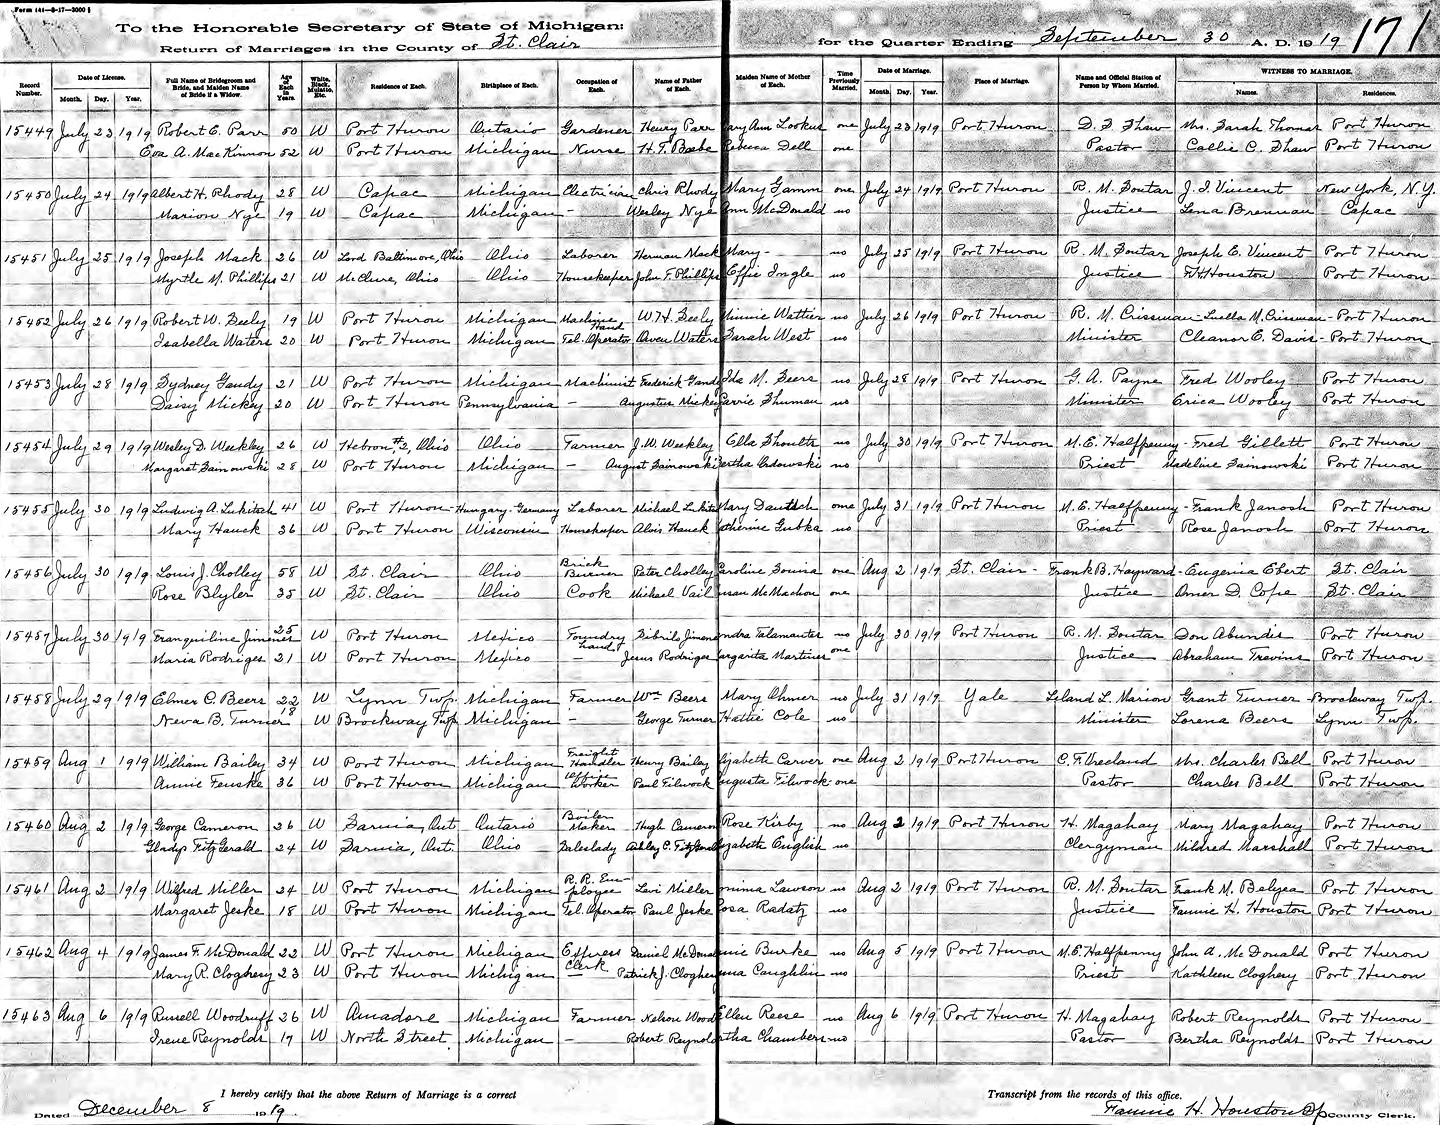 Form 141—8-17—3000
To the Honorable Secretary of State of Michigan:
Return of Marriages in the County of St. Clair
for the Quarter Ending September 30 A. D. 1919 171
Record Number. Date of License. Month. Day. Year. Full Name of Bridegroom and Bride, and Maiden Name of Bride if a Widow. Age of Each in Years. White, Black, Mulatto, Etc. Residence of Each. Birthplace of Each. Occupation of Each. Name of Father of Each. Maiden Name of Mother of Each. Time Previously Married. Date of Marriage. Month. Day. Year. Place of Marriage. Name and Official Station of Person by Whom Married. WITNESS TO MARRIAGE. Names. Residences.
15449 July 23 1919 Robert E. Parr 50 W Port Huron Ontario Gardener Henry Parr ary Ann Lookus one July 23 1919 Port Huron D. F. Shaw Mrs. Sarah Thomas Port Huron
Eva A. MacKinnon 52 W Port Huron Michigan Nurse H. T. Beebe Rebecca Dell one Pastor Callie C. Shaw Port Huron
15450 July 24 1919 Albert H. Rhody 28 W Capac Michigan Electrician Chris Rhody Mary Gamm one July 24 1919 Port Huron R. M. Soutar J. I. Vincent New York, N.Y.
Marion Nye 19 W Capac Michigan - Wesley Nye Ann McDonald no Justice Lena Brennan Capac
15451 July 25 1919 Joseph Mack 26 W Lord Baltimore, Ohio Ohio Laborer Herman Mack Mary - no July 25 1919 Port Huron R. M. Soutar Joseph E. Vincent Port Huron
Myrtle M. Phillips 21 W McClure, Ohio Ohio Housekeeper John F. Phillips Effie Ingle no Justice F. H. Houston Port Huron
15452 July 26 1919 Robert W. Seely 19 W Port Huron Michigan Machine Hand W. H. Seely Minnie Wattier no July 26 1919 Port Huron R. M. Crissman Luella M. Crissman Port Huron
Isabella Waters 20 W Port Huron Michigan Tel. Operator Owen Waters Sarah West no Minister Eleanor E. Davis Port Huron
15453 July 28 1919 Sydney Gandy 21 W Port Huron Michigan Machinist Frederick Gandy Ida M. Seers no July 28 1919 Port Huron G. A. Payne Fred Wooley Port Huron
Daisy Mickey 20 W Port Huron Pennsylvania - Augustus Mickey Carrie Shuman no Minister Erica Wooley Port Huron
15454 July 29 1919 Wesley D. Weekley 26 W Hebron #2, Ohio Ohio Farmer J. W. Weekley Ella Shoults no July 30 1919 Port Huron M. E. Halfpenny Fred Gillett Port Huron
Margaret Sainowski 28 W Port Huron Michigan - August Sainowski ertha Ordowski no Priest Madeline Sainowski Port Huron
15455 July 30 1919 Ludwig A. Lukitsch 41 W Port Huron Hungary-Germany Laborer Michael Lukits Mary Dautsch one July 31 1919 Port Huron M. E. Halfpenny Frank Janosh Port Huron
Mary Hauck 36 W Port Huron Wisconsin Homekeeper Alois Hauck atherine Gubka no Priest Rose Janosh Port Huron
15456 July 30 1919 Louis J. Cholley 58 W St. Clair Ohio Brick Burner Peter Cholley Caroline Souva one Aug 2 1919 St. Clair Frank B. Hayward Eugenia Ebert St. Clair
Rose Blyler 35 W St. Clair Ohio Cook Michael Vail usan McMachon one Justice Omer D. Cope St. Clair
15457 July 30 1919 Tranquiline Jimenes 25 W Port Huron Mexico Foundry hand Sibrils Jimene ndra Talamantes no July 30 1919 Port Huron R. M. Soutar Don Abundis Port Huron
Maria Rodriges 21 W Port Huron Mexico - Jesus Rodriges argarita Martines one Justice Abraham Trevins Port Huron
15458 July 29 1919 Elmer C. Beers 22 W Lynn Twp. Michigan Farmer Wm Beers Mary Ohmer no July 31 1919 Yale Leland L. Marion Grant Turner Brockway Twp.
Neva B. Turner 18 W Brockway Twp. Michigan - George Turner Hattie Cole no Minister Lorena Beers Lynn Twp.
15459 Aug 1 1919 William Bailey 34 W Port Huron Michigan Freight Handler Henry Bailey lizabeth Carver one Aug 2 1919 Port Huron C. F. Vreeland Mrs. Charles Bell Port Huron
Annie Fenske 36 W Port Huron Michigan Office Worker Paul Filwock ugusta Filwock one Pastor Charles Bell Port Huron
15460 Aug 2 1919 George Cameron 26 W Sarnia, Ont Ontario Boiler Maker Hugh Cameron Rose Kirby no Aug 2 1919 Port Huron H. Magahay Mary Magahay Port Huron
Gladys FitzGerald 24 W Sarnia, Ont. Ohio Saleslady Ashley C. FitzGerald lizabeth English no Clergyman Mildred Marshall Port Huron
15461 Aug 2 1919 Wilfred Miller 24 W Port Huron Michigan R. R. Employee Levi Miller mima Lawson no Aug 2 1919 Port Huron R. M. Soutar Frank M. Belyea Port Huron
Margaret Jeske 18 W Port Huron Michigan Tel. Operator Paul Jeske Rosa Radatz no Justice Fannie H. Houston Port Huron
15462 Aug 4 1919 James F. McDonald 22 W Port Huron Michigan Express Clerk Daniel McDonal nnie Burke no Aug 5 1919 Port Huron M. E. Halfpenny John A. McDonald Port Huron
Mary R. Cloghery 23 W Port Huron Michigan - Patrick J. Cloghery nna Caughlin no Priest Kathleen Cloghery Port Huron
15463 Aug 6 1919 Russell Woodruff 26 W Amadore Michigan Farmer Nelson Wood Ellen Reese no Aug 6 1919 Port Huron H. Magahay Robert Reynolds Port Huron
Irene Reynolds 19 W North Street Michigan - Robert Reynol rtha Chambers no Pastor Bertha Reynolds Port Huron
I hereby certify that the above Return of Marriage is a correct Transcript from the records of this office.
Dated December 8 1919 Fannie H. Houston Dp County Clerk.